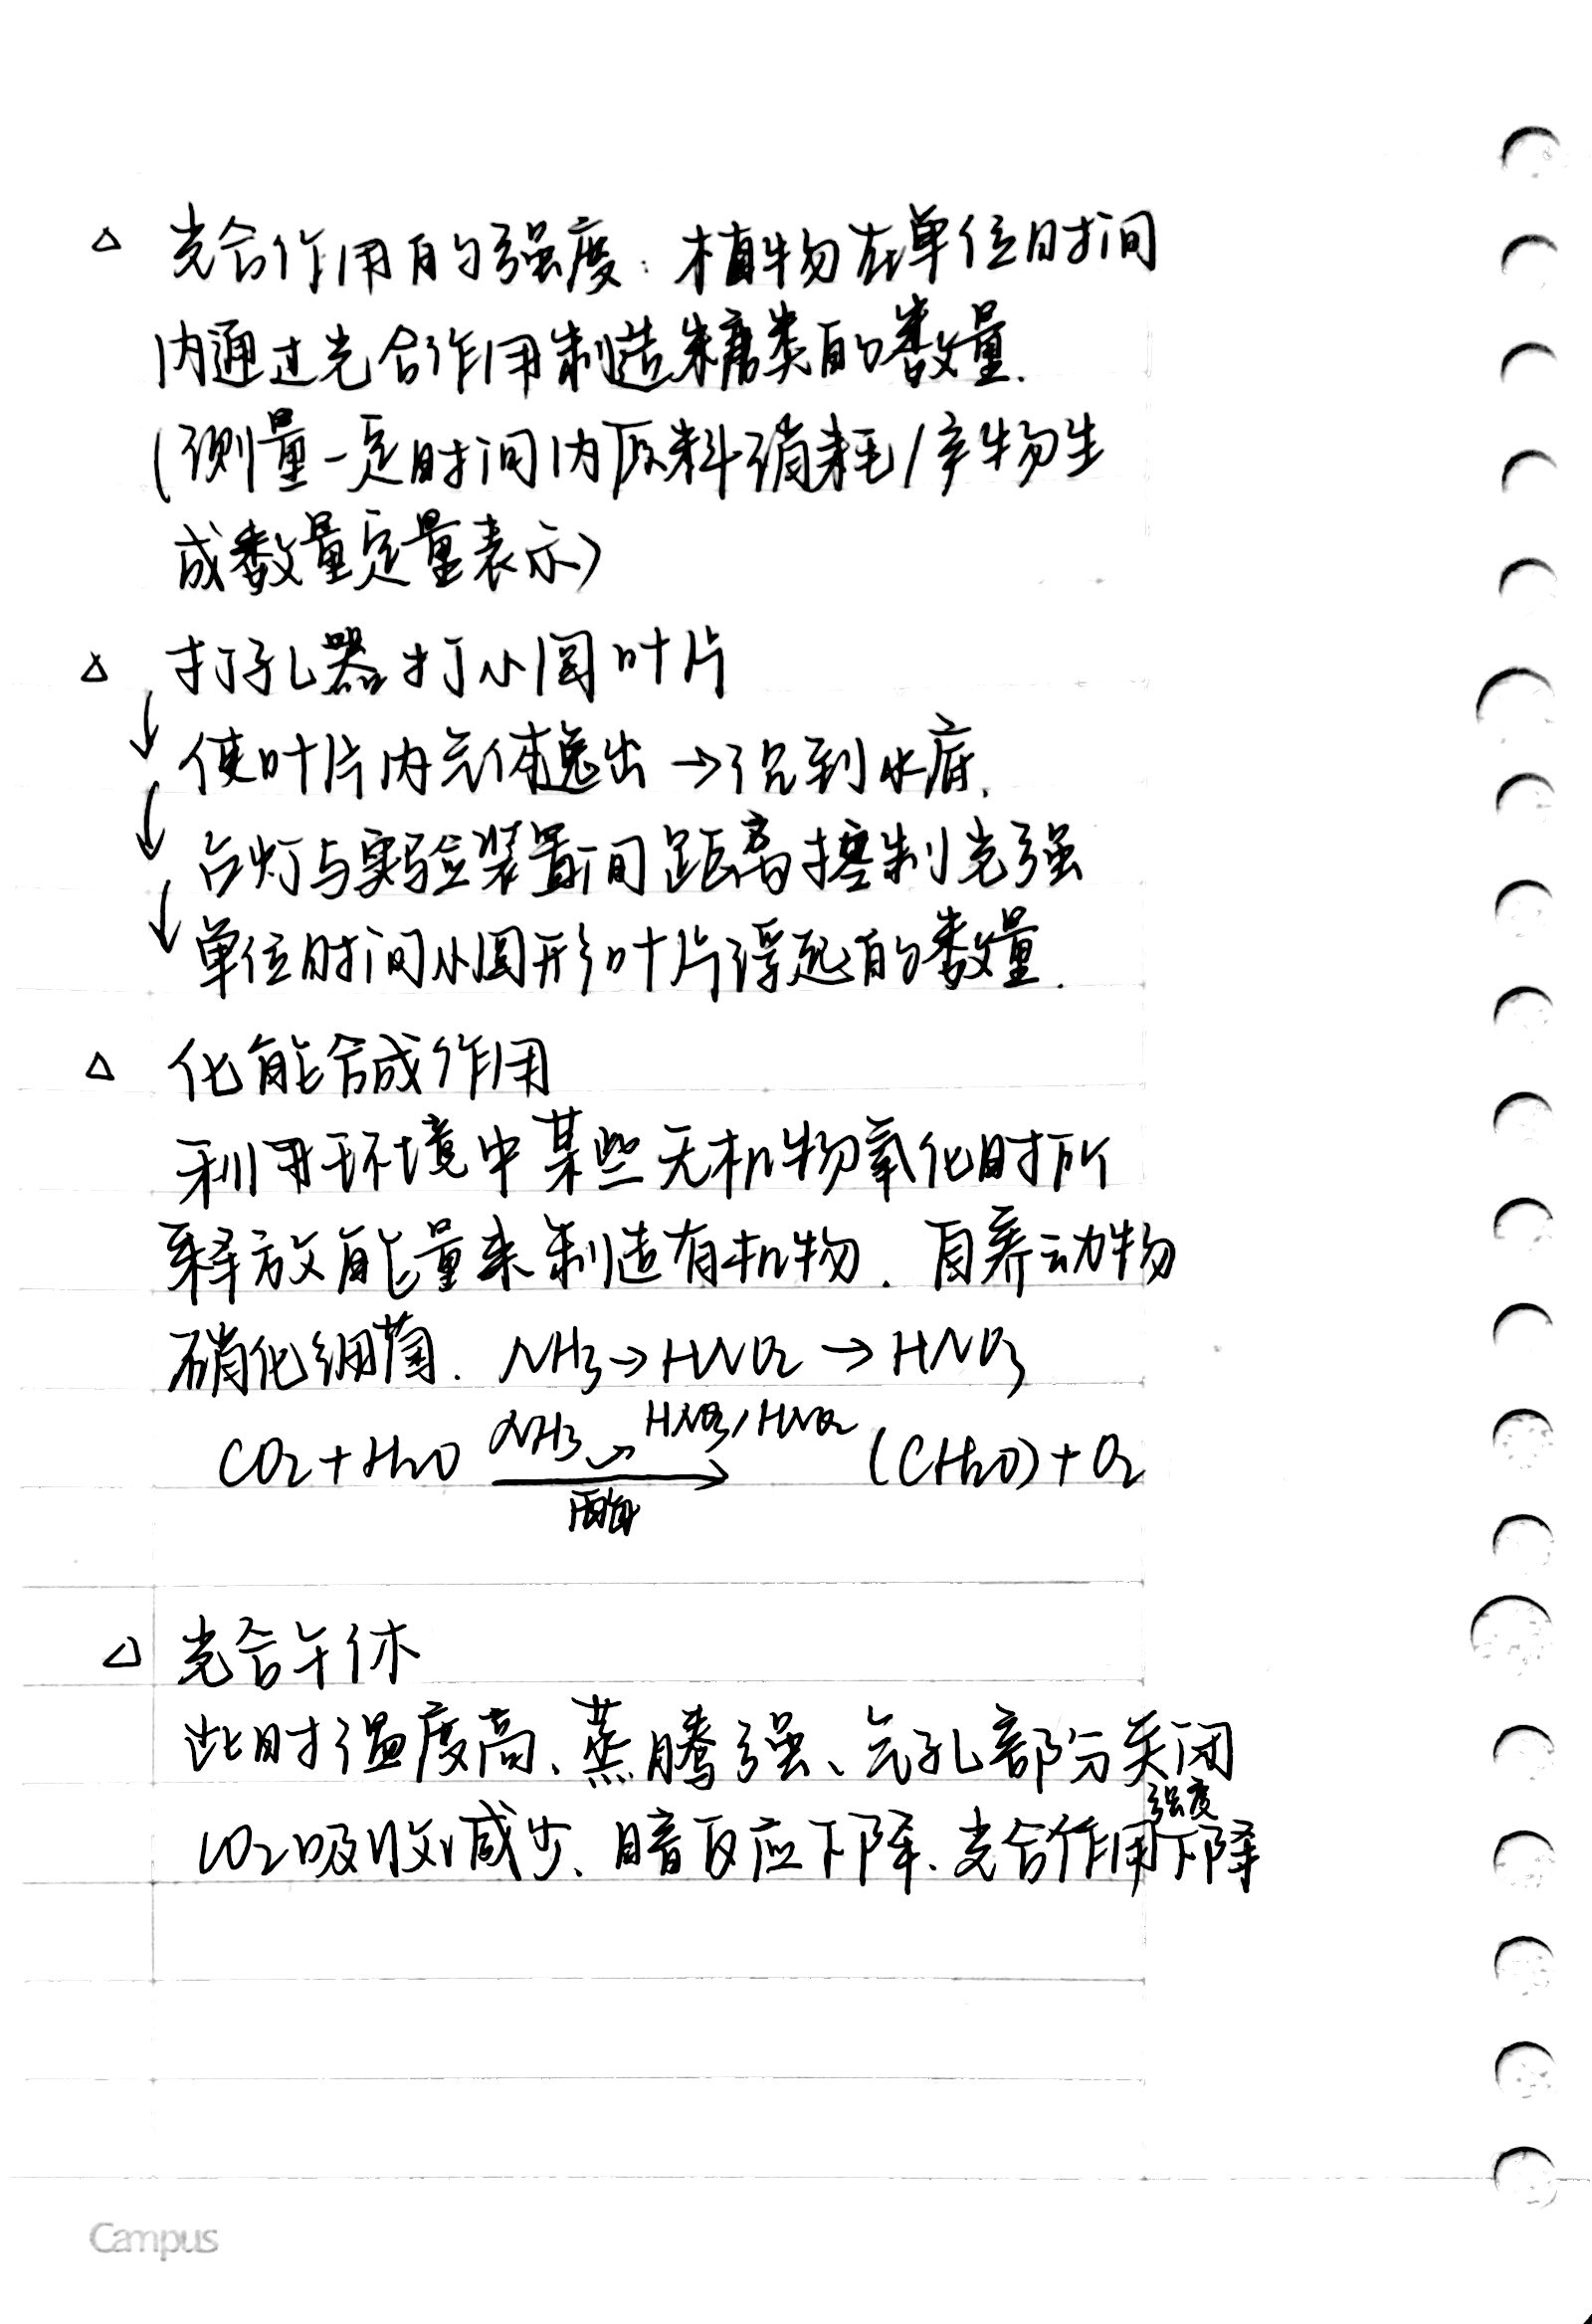 △ 光合作用的强度：植物在单位时间
内通过光合作用制造糖类的数量.
(测量一定时间内原料消耗/产物生
成数量定量表示)
△ 打孔器打小圆叶片
↓ 使叶片内气体逸出→沉到水底.
↓ 台灯与实验装置间距离控制光强
↓ 单位时间小圆形叶片浮起的数量.
△ 化能合成作用
利用环境中某些无机物氧化时所
释放能量来制造有机物. 自养动物
硝化细菌. NH₃→HNO₂→HNO₃
NH₃ HNO₃/HNO₂
CO₂+H₂O → (CH₂O)+O₂
酶
△ 光合午休
此时温度高、蒸腾强、气孔部分关闭
强度
CO₂吸收减少、暗反应下降、光合作用下降
Campus